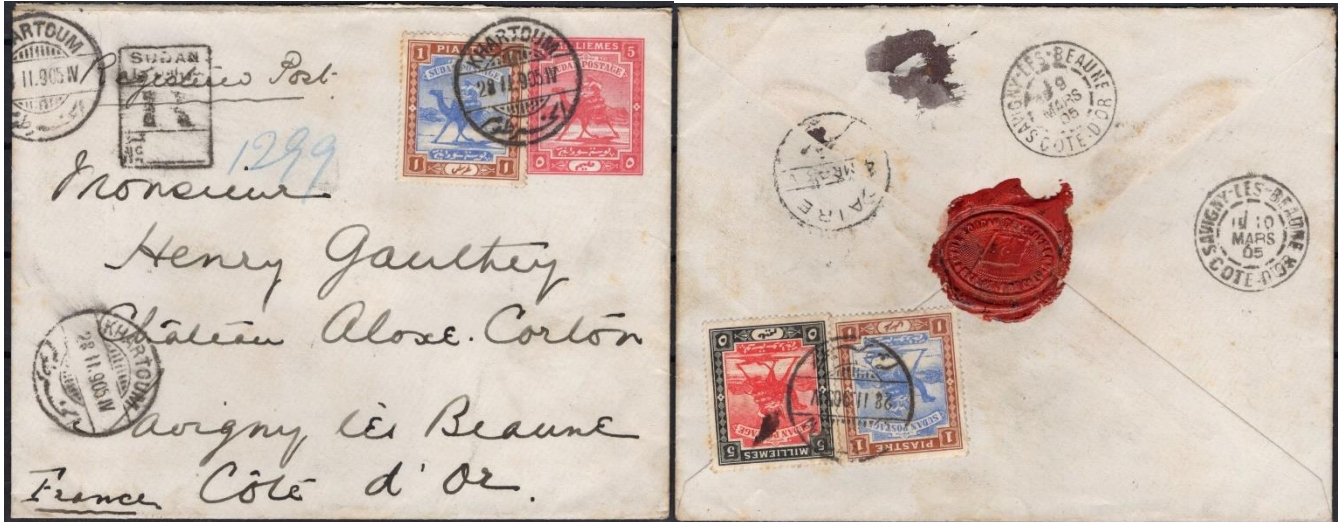 KHARTOUM
28 II.905 IV
SUDAN
R
Registered Post
1299
1 PIASTRE
SUDAN POSTAGE
1 1
KHARTOUM
28 II.905 IV
5 MILLIEMES 5
SUDAN POSTAGE
Monsieur
Henry Gauthey
Château Aloxe-Corton
Savigny lès Beaune
Côte d'Or.
France
KHARTOUM
28 II.905 IV
SAVIGNY-LES-BEAUNE
9
MARS
05
COTE-D'OR
CAIRE
SAVIGNY-LES-BEAUNE
10
MARS
05
COTE-D'OR
SUDAN POSTAGE
5 MILLIEMES 5
28 II.905 IV
SUDAN POSTAGE
1 PIASTRE 1